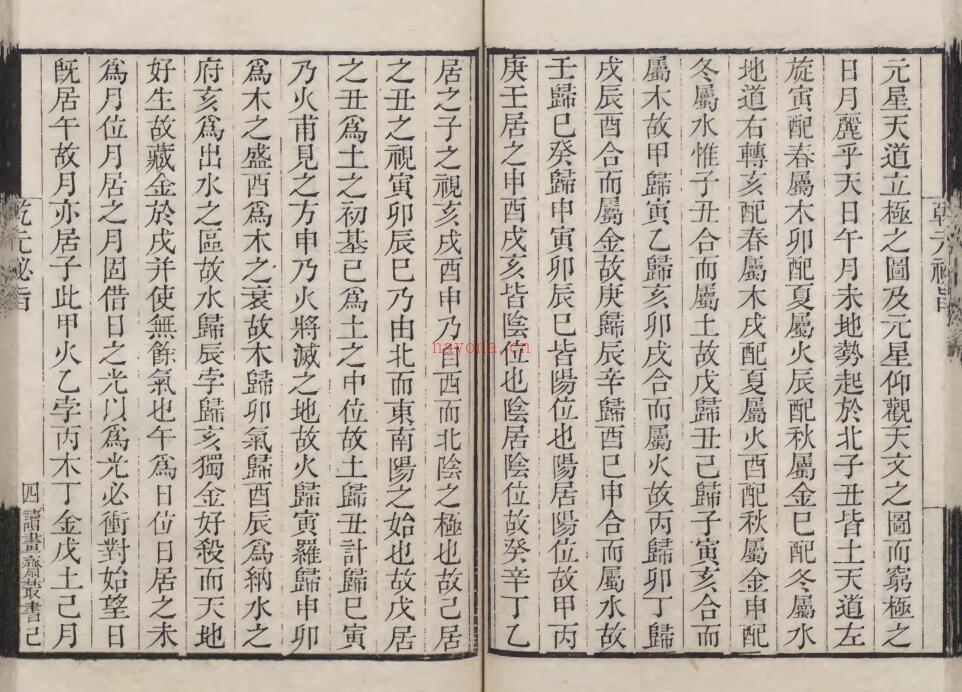 元星天道立極之圖及元星仰觀天文之圖而窮極之
日月麗乎天日午月未地勢起於北子丑皆土天道左
旋寅配春屬木卯配夏屬火辰配秋屬金巳配冬屬水
地道右轉亥配春屬木戌配夏屬火酉配秋屬金申配
冬屬水惟子丑合而屬土故戊歸丑己歸子寅亥合而
屬木故甲歸寅乙歸亥卯戌合而屬火故丙歸卯丁歸
戌辰酉合而屬金故庚歸辰辛歸酉巳申合而屬水故
壬歸巳癸歸申寅卯辰巳皆陽位也陽居陽位故甲丙
庚壬居之申酉戌亥皆陰位也陰居陰位故癸辛丁乙
居之子之視亥戌酉申乃自西而北陰之極也故己居
之丑之視寅卯辰巳乃由北而東南陽之始也故戊居
之丑爲土之初基已爲土之中位故土歸丑計歸巳寅
乃火甫見之方申乃火將滅之地故火歸寅羅歸申卯
爲木之盛酉爲木之衰故木歸卯氣歸酉辰爲納水之
府亥爲出水之區故水歸辰孛歸亥獨金好殺而天地
好生故藏金於戌并使無餘氣也午爲日位日居之未
爲月位月居之月固借日之光以爲光必衝對始望日
旣居午故月亦居子此甲火乙孛丙木丁金戊土己月
乾元秘旨
四
讀畫齋叢書己
nayona.cn